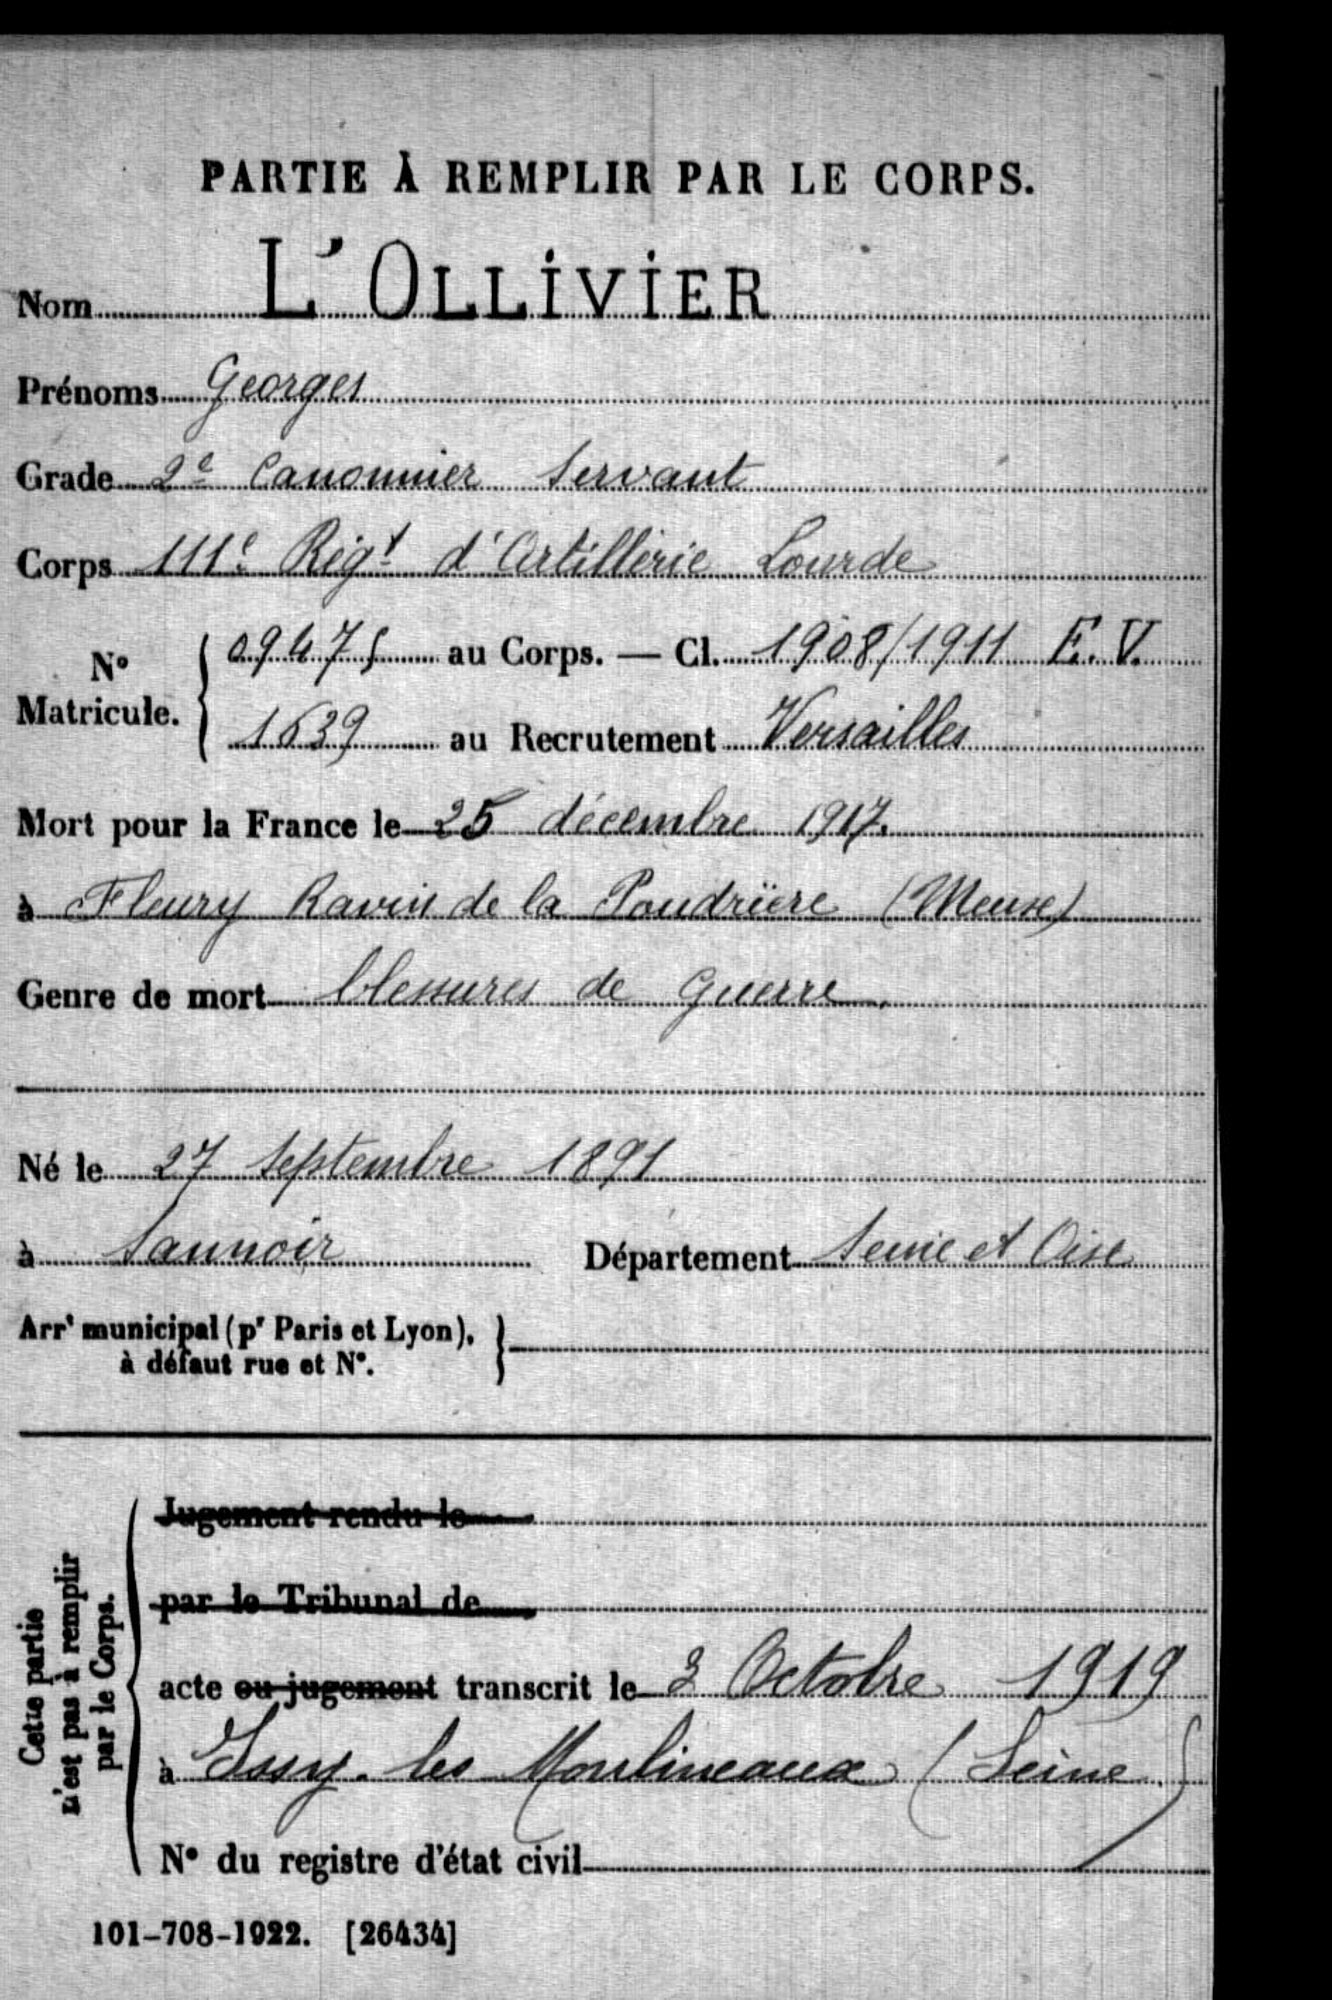 PARTIE À REMPLIR PAR LE CORPS.
Nom L'OLLIVIER
Prénoms Georges
Grade 2e Canonnier Servant
Corps 111e Régt d'Artillerie Lourde
No Matricule. { 09475 au Corps. — Cl. 1908/1911 E.V.
1639 au Recrutement Versailles
Mort pour la France le 25 décembre 1917.
à Fleury Ravin de la Poudrière (Meuse)
Genre de mort blessures de guerre.
Né le 27 Septembre 1891
à Sannoir Département Seine et Oise
Arrt municipal (pr Paris et Lyon),
à défaut rue et No.
Cette partie
n'est pas à remplir
par le Corps.
Jugement rendu le
par le Tribunal de
acte ou jugement transcrit le 3 Octobre 1919
à Issy-les Moulineaux (Seine)
No du registre d'état civil
101-708-1922. [26434]